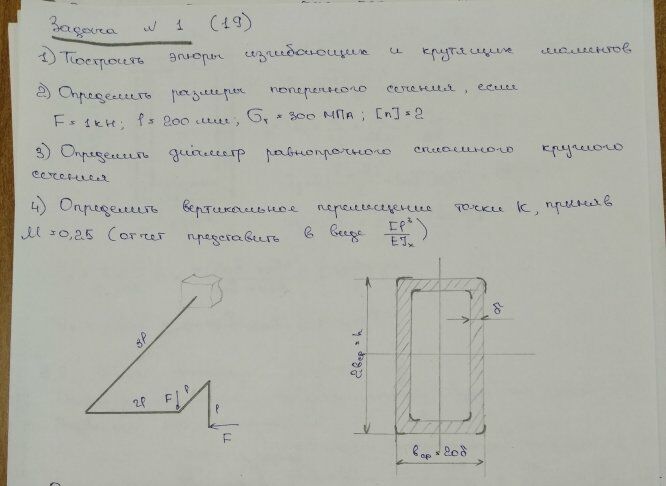 Задача № 1 (19)
1) Построить эпюры изгибающих и крутящих моментов
2) Определить размеры поперечного сечения, если
F = 1кН; l = 200 мм; σт = 300 МПа; [n] = 2
3) Определить диаметр равнопрочного сплошного круглого
сечения
4) Определить вертикальное перемещение точки К, приняв
M = 0,25 (отчет представить в виде Fl³/EJx)
3l
2l
F
l
l
F
δ
2bср = h
bср = 20δ